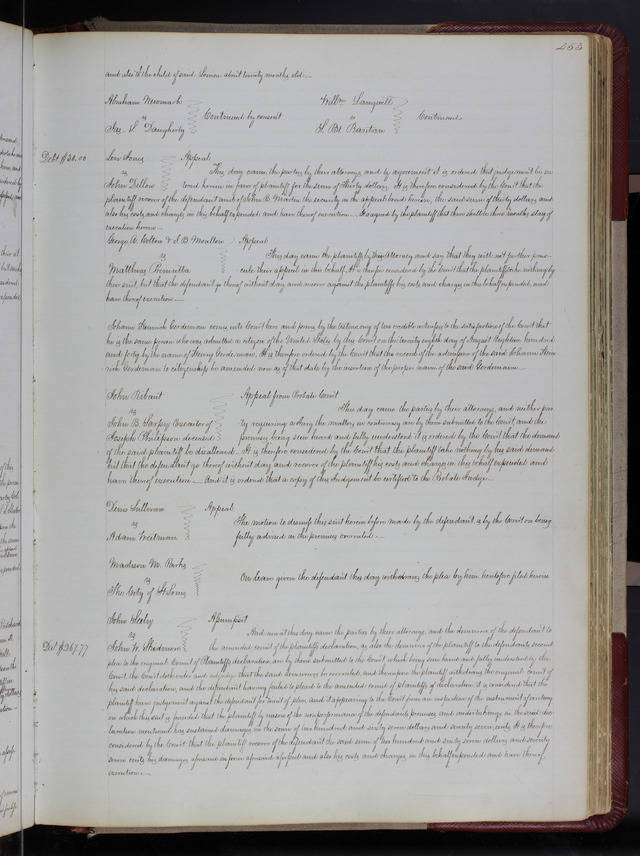 455
and also the child of said about twenty months old
Abraham Newmark
vs Continued by consent
Jas. S. Daugherty
vs Continued
Debt $30.00
Levi Jones Appeal
vs This day came the parties by their attorneys, and by agreement it is ordered that judgement be en
John Dillow tered herein in favor of plaintiff for the sum of thirty dollars. It is therefore considered by the Court that the
plaintiff recover of the defendant and of John B. the security in the appeal bond herein, the said sum of thirty dollars, and
also his costs and charges in this behalf expended and have thereof execution. It is agreed by the plaintiff that there shall be three months stay of
execution hereon
George W. & S. B. Appeal
vs This day came the plaintiffs by their attorney and say that they will not further prose-
Matthias cute their appeal in this behalf. It is therefore considered by the Court that the plaintiffs take nothing by
their suit, but that the defendant go thereof without day and recover against the plaintiffs his costs and charges in this behalf expended, and
have thereof execution
Johann Heinrich Gerdemann comes into Court here and proves by the testimony of two credible witnesses to the satisfaction of the Court that
he is the same person who was admitted a citizen of the United States by this Court on the twenty eighth day of August Eighteen hundred
and forty by the name of Henry Gerdemann, It is therefore ordered by the Court that the record of the admission of the said Johann Hein
rich Gerdemann to citizenship be amended now as of that date by the insertion of the proper name of the said Gerdemann
John Ribaut Appeal from Probate Court
vs This day came the parties by their attorneys, and neither par
John B. Sarpy Executor of ty requiring a jury the matters in controversy are by them submitted to the Court, and the
Joseph Philipson deceased premises being seen heard and fully understood it is ordered by the Court that the demand
of the said plaintiff be disallowed. It is therefore considered by the Court that the plaintiff take nothing by his said demand
but that the defendant go thereof without day and recover of the plaintiff his costs and charges in this behalf expended and
have thereof execution. And it is ordered that a copy of this Judgement be certified to the Probate Judge
Denis Sullivan Appeal
vs The motion to dismiss this suit herein before made by the defendant, is by the Court on being
Adam fully advised in the premises overruled
Madison W.
vs On leave given the defendant this day withdraws the plea by him heretofore filed herein
The City of St Louis
John Assumpsit
vs And now at this day came the parties by their attorneys, and the demurrer of the defendant to
Dam $267.77
John W. the amended count of the plaintiffs declaration, as also the demurrer of the plaintiff to the defendants second
plea to the original Count of Plaintiffs declaration, are by them submitted to the Court, which being seen heard and fully understood by the
Court, the Court doth order and adjudge that the said demurrers be overruled, and thereupon the plaintiff withdrawing the original count of
his said declaration, and the defendant having failed to plead to the amended count of plaintiffs declaration it is considered that the
plaintiff have judgement against the defendant for want of plea, and it appearing to the Court from an inspection of the instrument of writing
on which this suit is founded that the plaintiff by reason of the non performance of the defendants promises and undertakings in the said dec
laration mentioned has sustained damages in the sum of two hundred and sixty seven dollars and seventy seven cents, It is therefore
considered by the Court that the plaintiff recover of the defendant the said sum of two hundred and sixty seven dollars and seventy
seven cents his damages aforesaid in form aforesaid assessed and also his costs and charges in this behalf expended and have thereof
execution